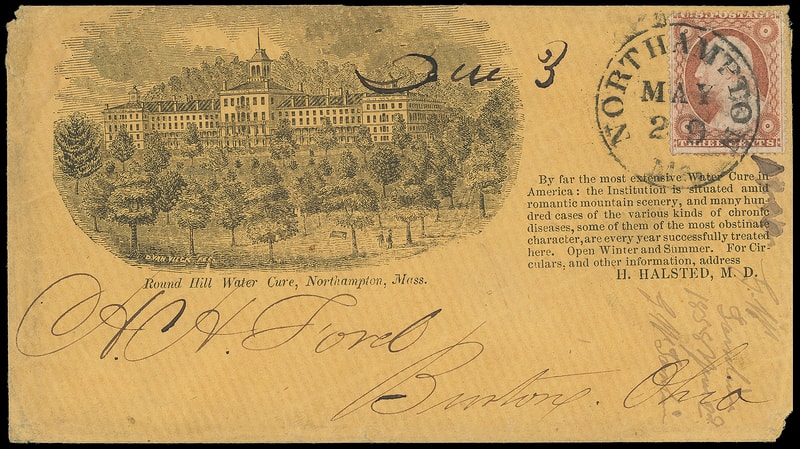 Due 3
NORTHAMPTON
MAY
29
U.S. POSTAGE
THREE CENTS
By far the most extensive Water Cure in
America: the Institution is situated amid
romantic mountain scenery, and many hun-
dred cases of the various kinds of chronic
diseases, some of them of the most obstinate
character, are every year successfully treated
here. Open Winter and Summer. For Cir-
culars, and other information, address
H. HALSTED, M. D.
Round Hill Water Cure, Northampton, Mass.
H. H. Ford
Burton, Ohio